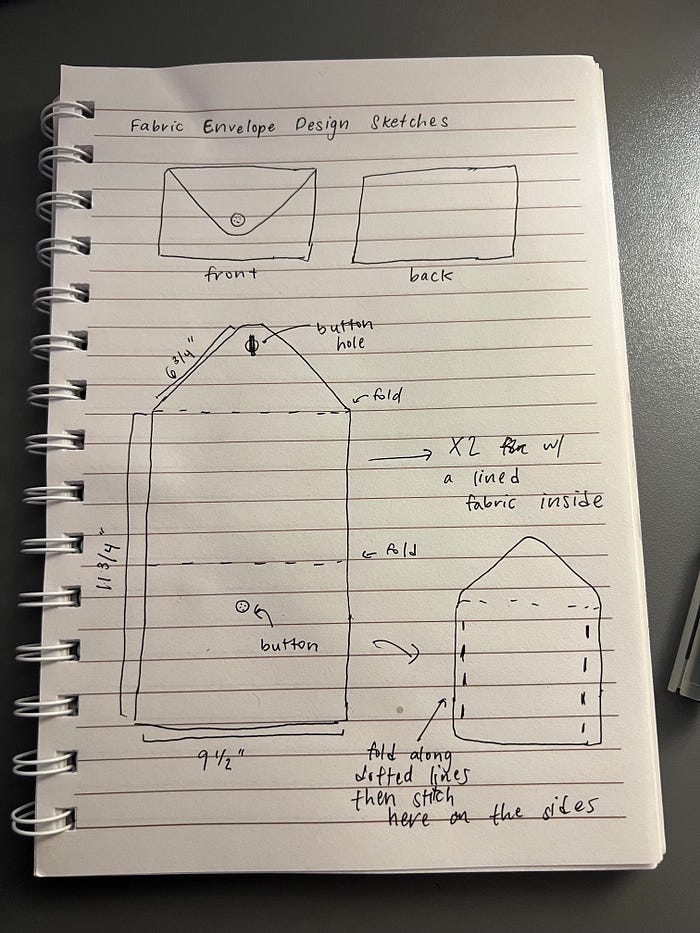 Fabric Envelope Design Sketches
front
back
6 3/4"
button
hole
fold
X2 w/
a lined
fabric inside
11 3/4"
fold
button
9 1/2"
fold along
dotted lines
then stitch
here on the sides